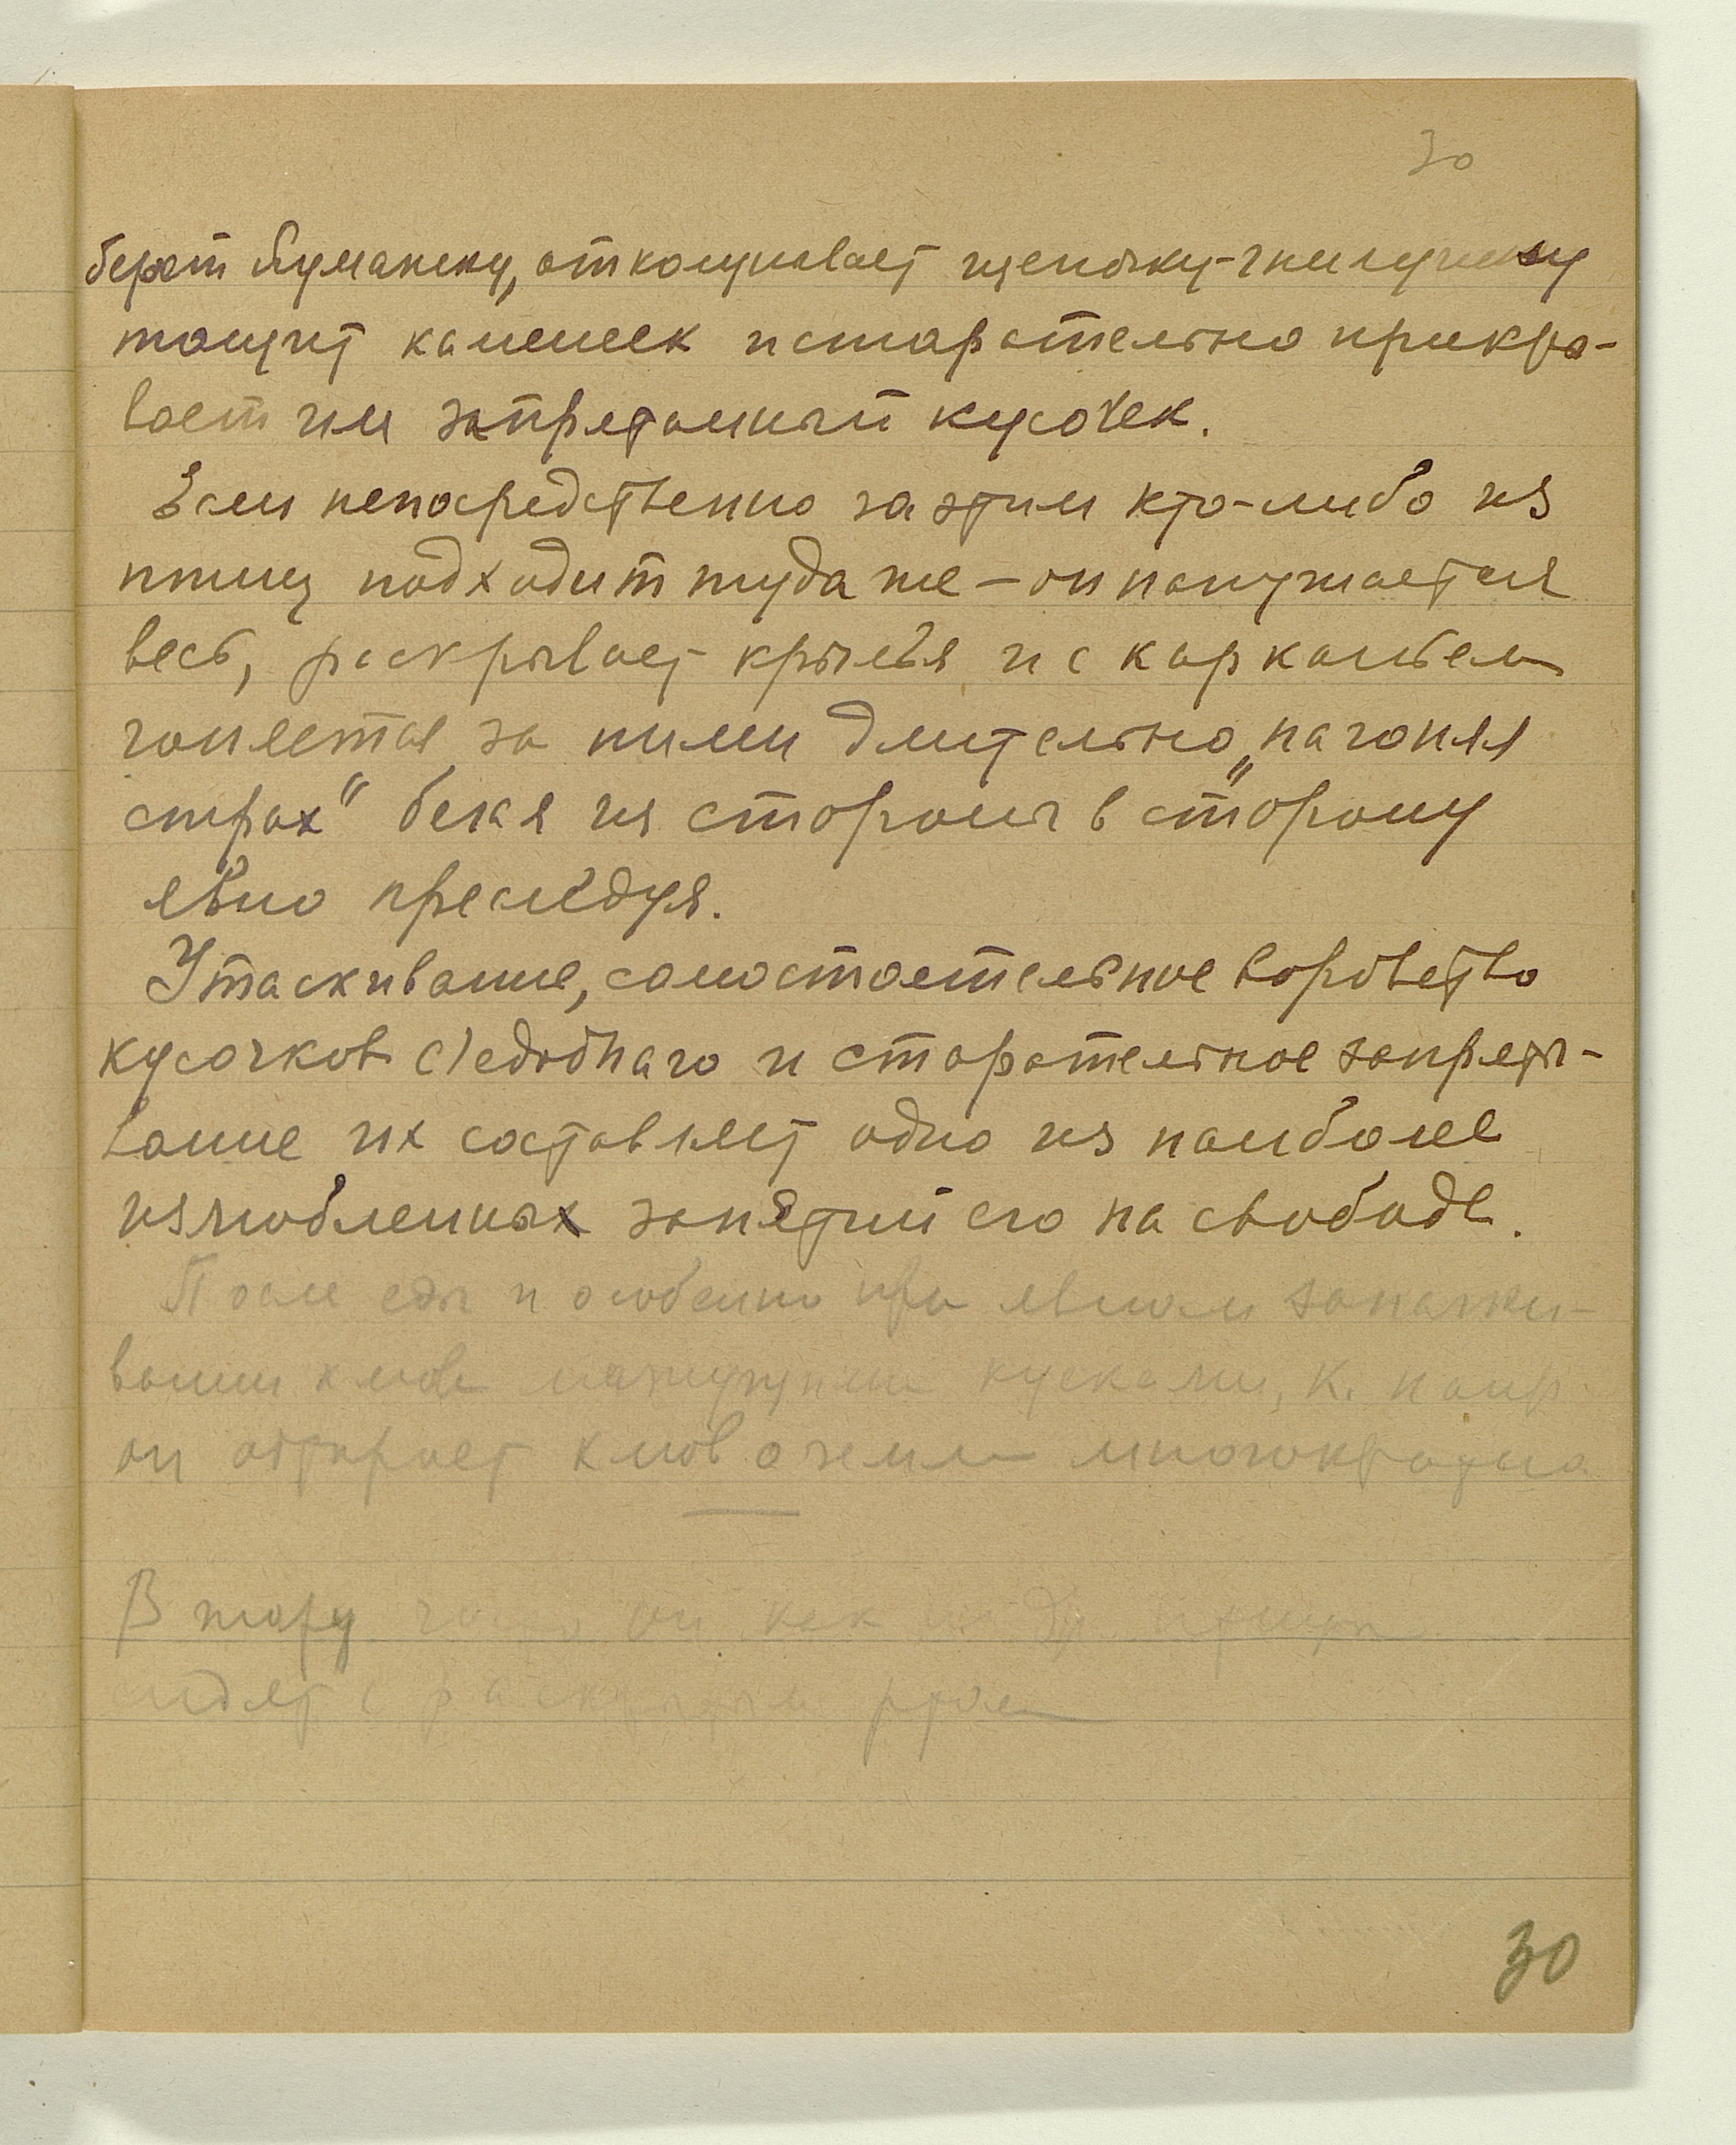 30
берет бумажку, отколупывает щепочку-гнилушку
тащит камешек и старательно прикры-
вает им запрятанный кусочек.
Если непосредственно за этим кто-либо из
птиц подходит туда же – он напужается
весь, раскрывает крылья и с карканьем
гоняется за ними длительно „нагоняя
страх" бежа из стороны в сторону
явно преследуя.
Утаскивание, самостоятельное воровство
кусочков съедобнаго и старательное запряты-
вание их составляет одно из наиболее
излюбленных занятий его на свободе.
После еды и особенно при явном запачки-
вании клюва кусками, к. напр.
он обтирает клюв о землю многократно
В жару он как и др. птицы
сидят с раскрытым ртом
30